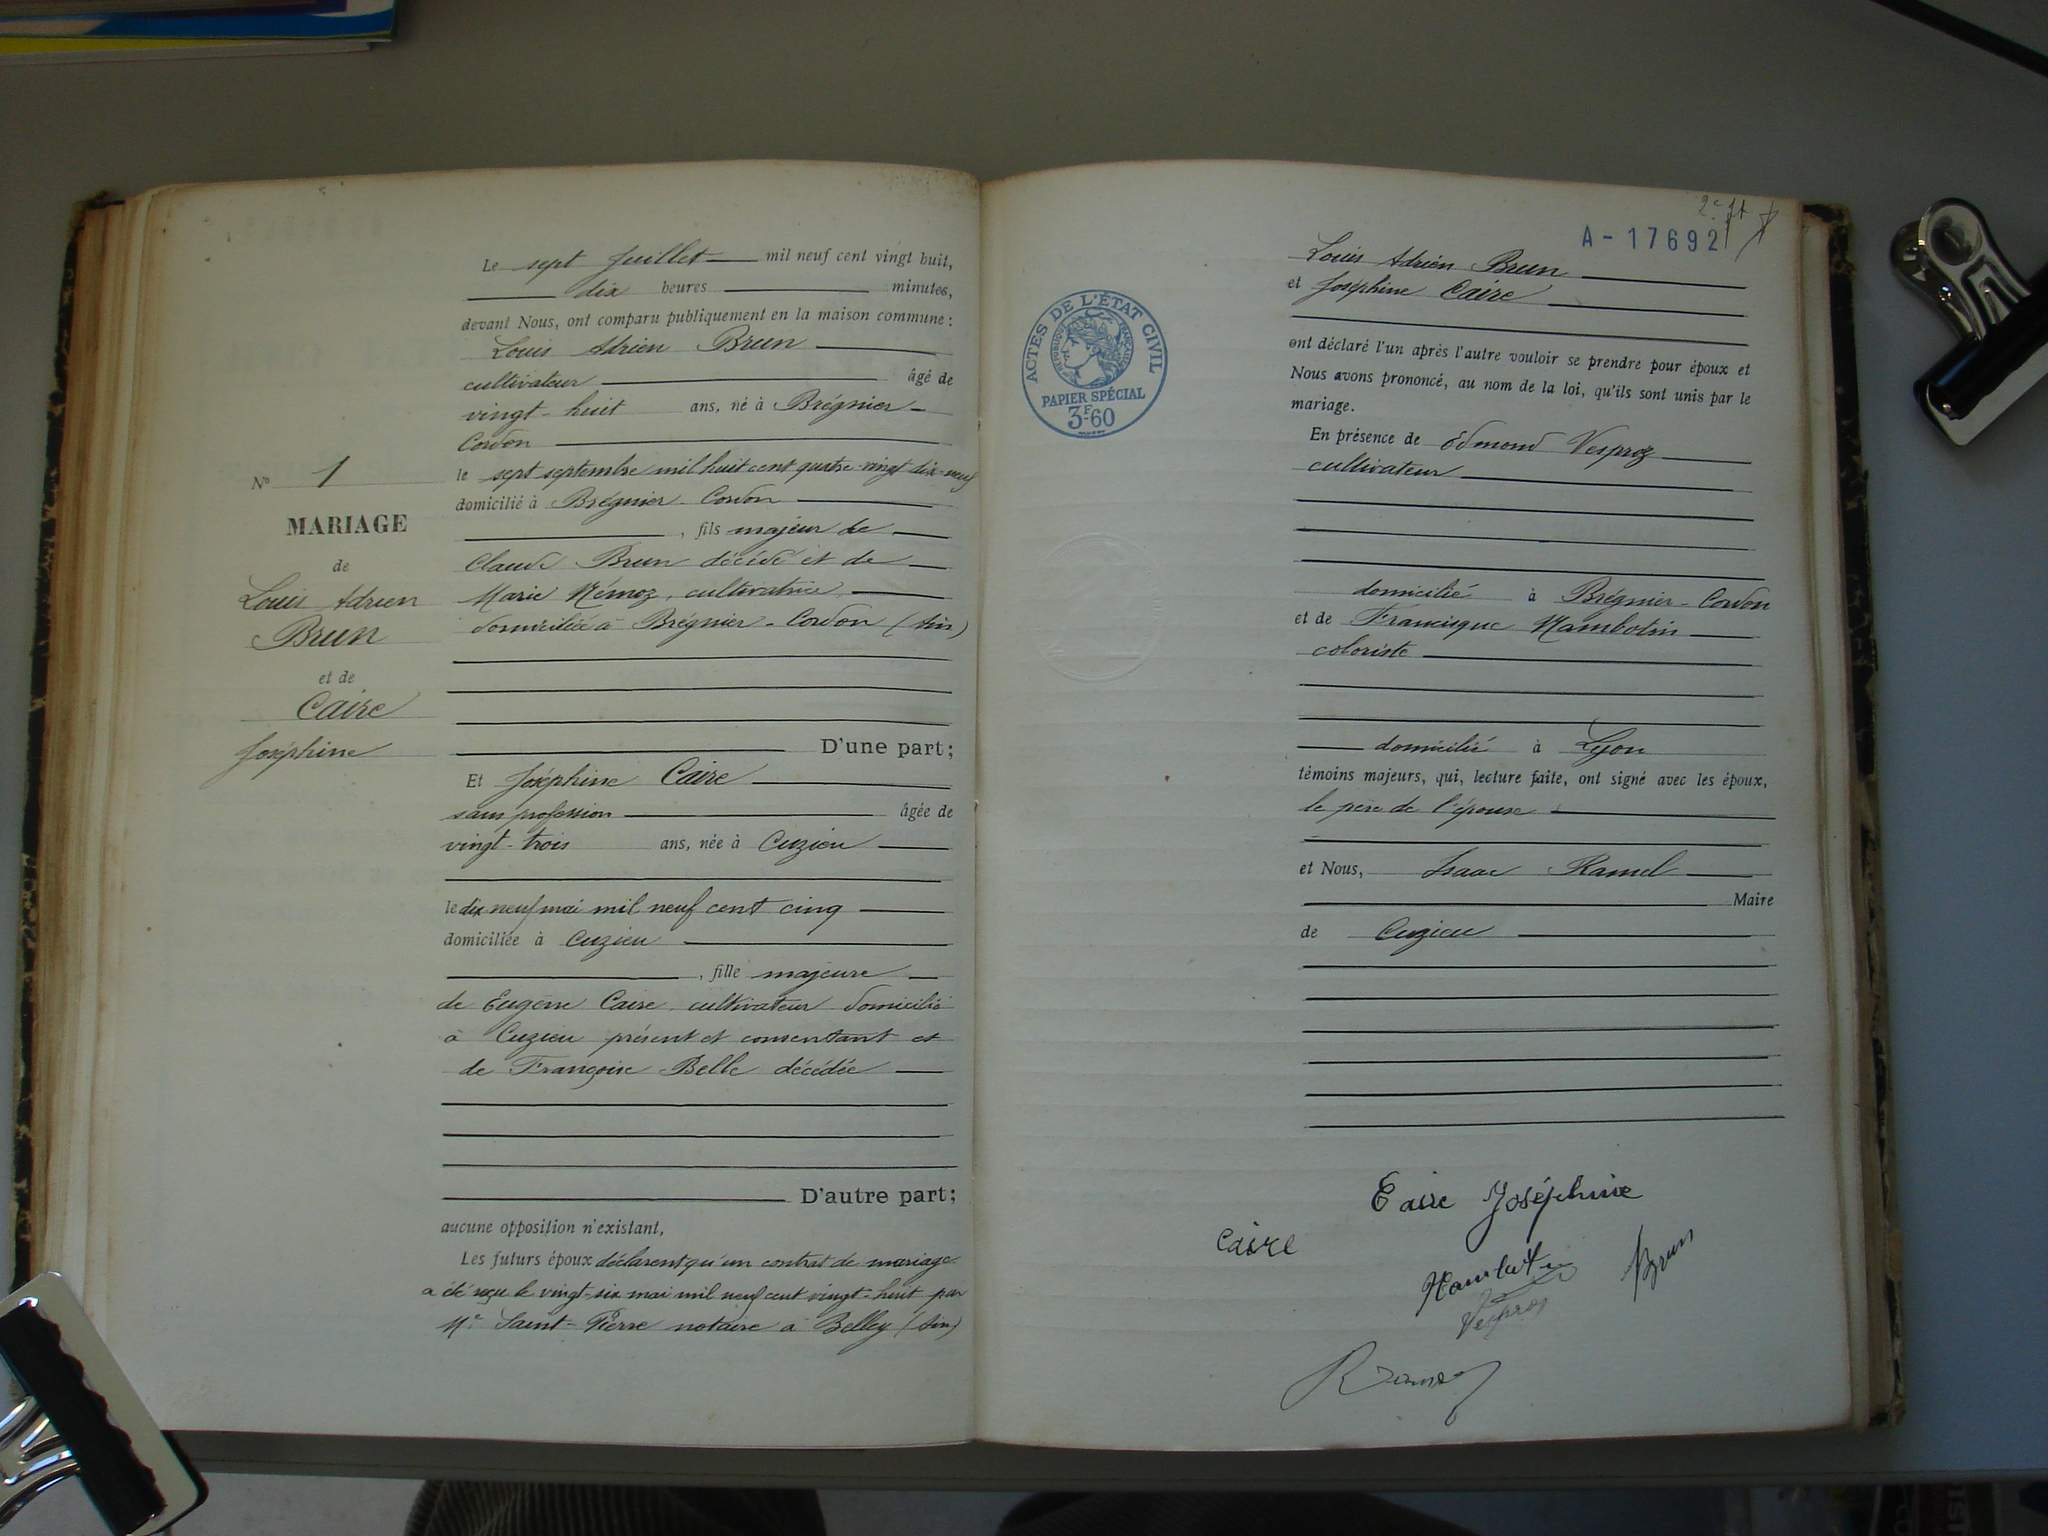 N° 1
MARIAGE
de
Louis Adrien
Brun
et de
Caire
Joséphine
Le sept Juillet mil neuf cent vingt huit,
dix heures minutes,
devant Nous, ont comparu publiquement en la maison commune :
Louis Adrien Brun
cultivateur âgé de
vingt-huit ans, né à Brégnier-
Cordon
le sept septembre mil huit cent quatre-vingt dix-neuf
domicilié à Brégnier-Cordon
, fils majeur de
Claude Brun décédé et de
Marie Mémoz, cultivatrice,
domiciliée à Brégnier-Cordon (Ain)
D'une part ;
Et Joséphine Caire
sans profession âgée de
vingt-trois ans, née à Cuzieu
le dix neuf mai mil neuf cent cinq
domiciliée à Cuzieu
, fille majeure
de Eugène Caire, cultivateur domicilié
à Cuzieu présent et consentant et
de Françoise Belle décédée
D'autre part ;
aucune opposition n'existant,
Les futurs époux déclarent qu'un contrat de mariage
a été reçu le vingt-six mai mil neuf cent vingt-huit par
Me Saint-Pierre notaire à Belley (Ain)
A-17692
ACTES DE L'ÉTAT CIVIL
RÉPUBLIQUE FRANÇAISE
PAPIER SPÉCIAL
3F60
Louis Adrien Brun
et Joséphine Caire
ont déclaré l'un après l'autre vouloir se prendre pour époux et
Nous avons prononcé, au nom de la loi, qu'ils sont unis par le
mariage.
En présence de Edmond Vesproz
cultivateur
domicilié à Brégnier-Cordon
et de Francisque Mambotin
coloriste
domicilié à Lyon
témoins majeurs, qui, lecture faite, ont signé avec les époux,
le père de l'épouse
et Nous, Isaac Ramel
Maire
de Cuzieu
Caire Joséphine
Caire
Brun
Vesproz